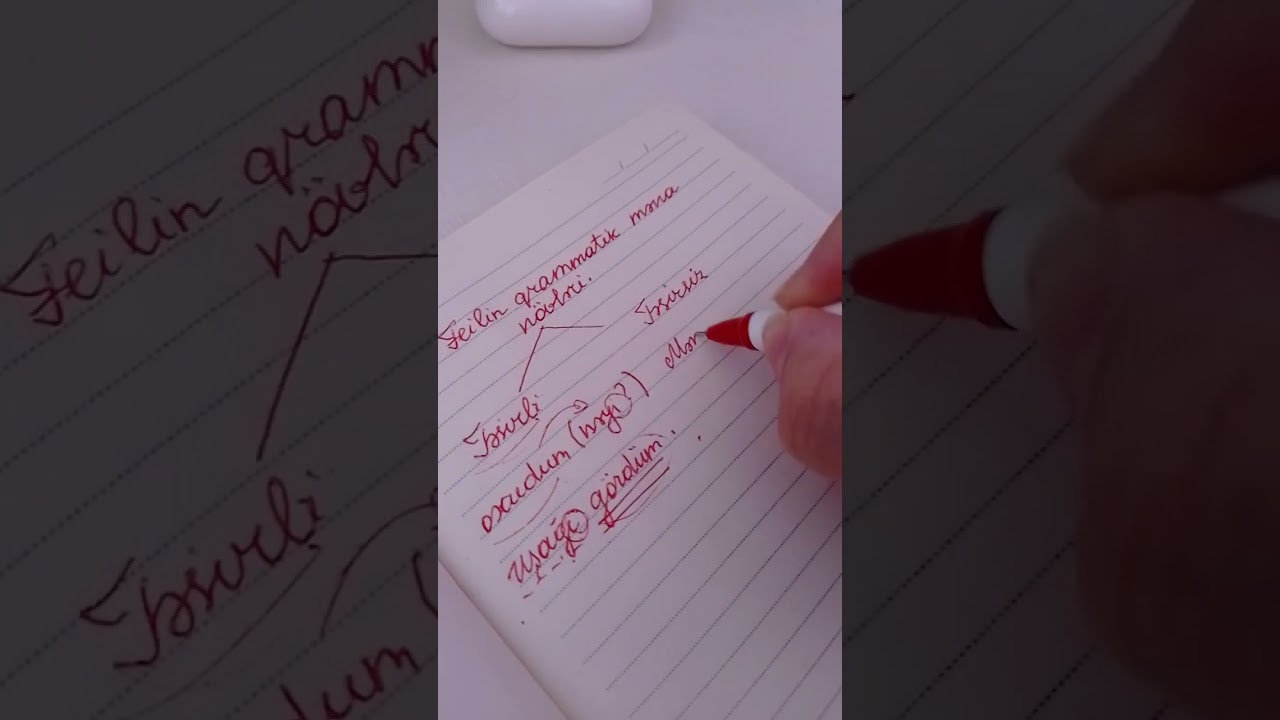 Feilin qrammatik məna
növləri.
Təsirli
Təsirsiz
oxudum (nəyi?)
Mən
uşağı gördüm.